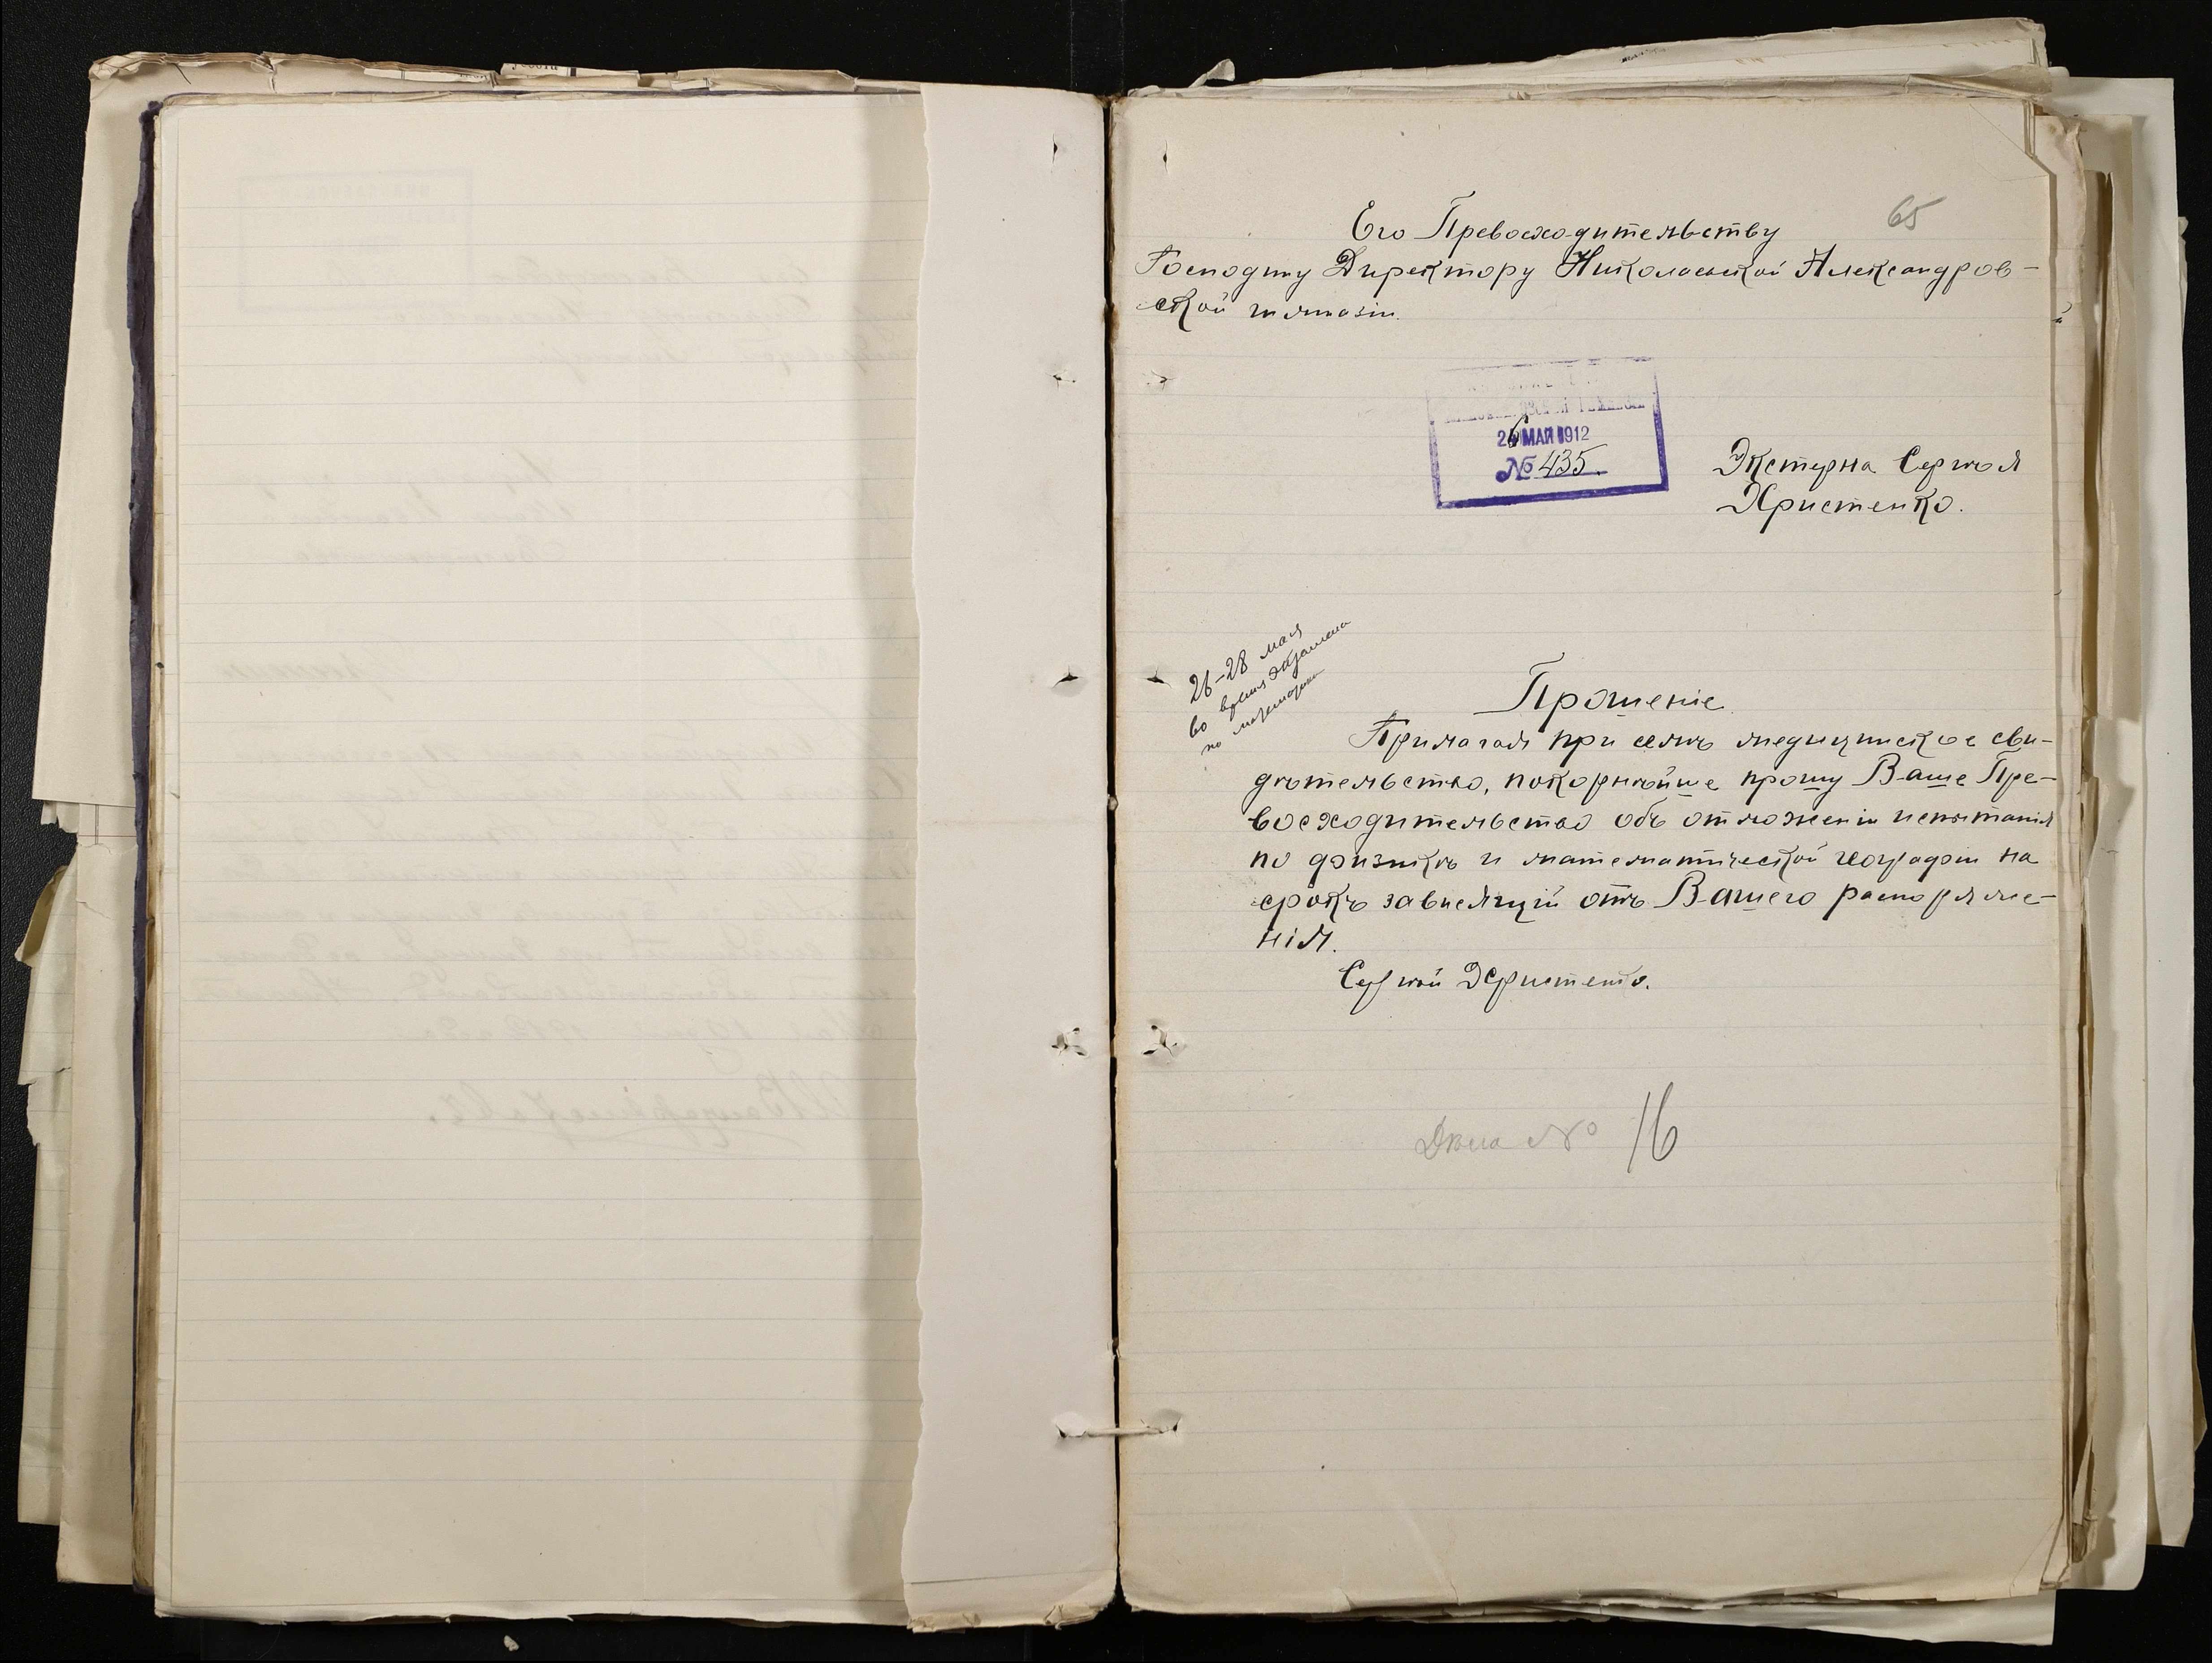 65
Его Превосходительству
Господину Директору Николаевской Александров-
ской гимназіи.
26 МАЯ 1912
№ 435.
Экстерна Сергѣя
Христенко.
26-28 мая
во время экзамена
по
Прошеніе.
Прилагая при семъ медицинское сви-
дѣтельство, покорнѣйше прошу Ваше Пре-
восходительство объ отложеніи испытанія
по физикѣ и математической географіи на
срокъ зависящій отъ Вашего распоряже-
нія.
Сергѣй Христенко.
Дѣла № 16